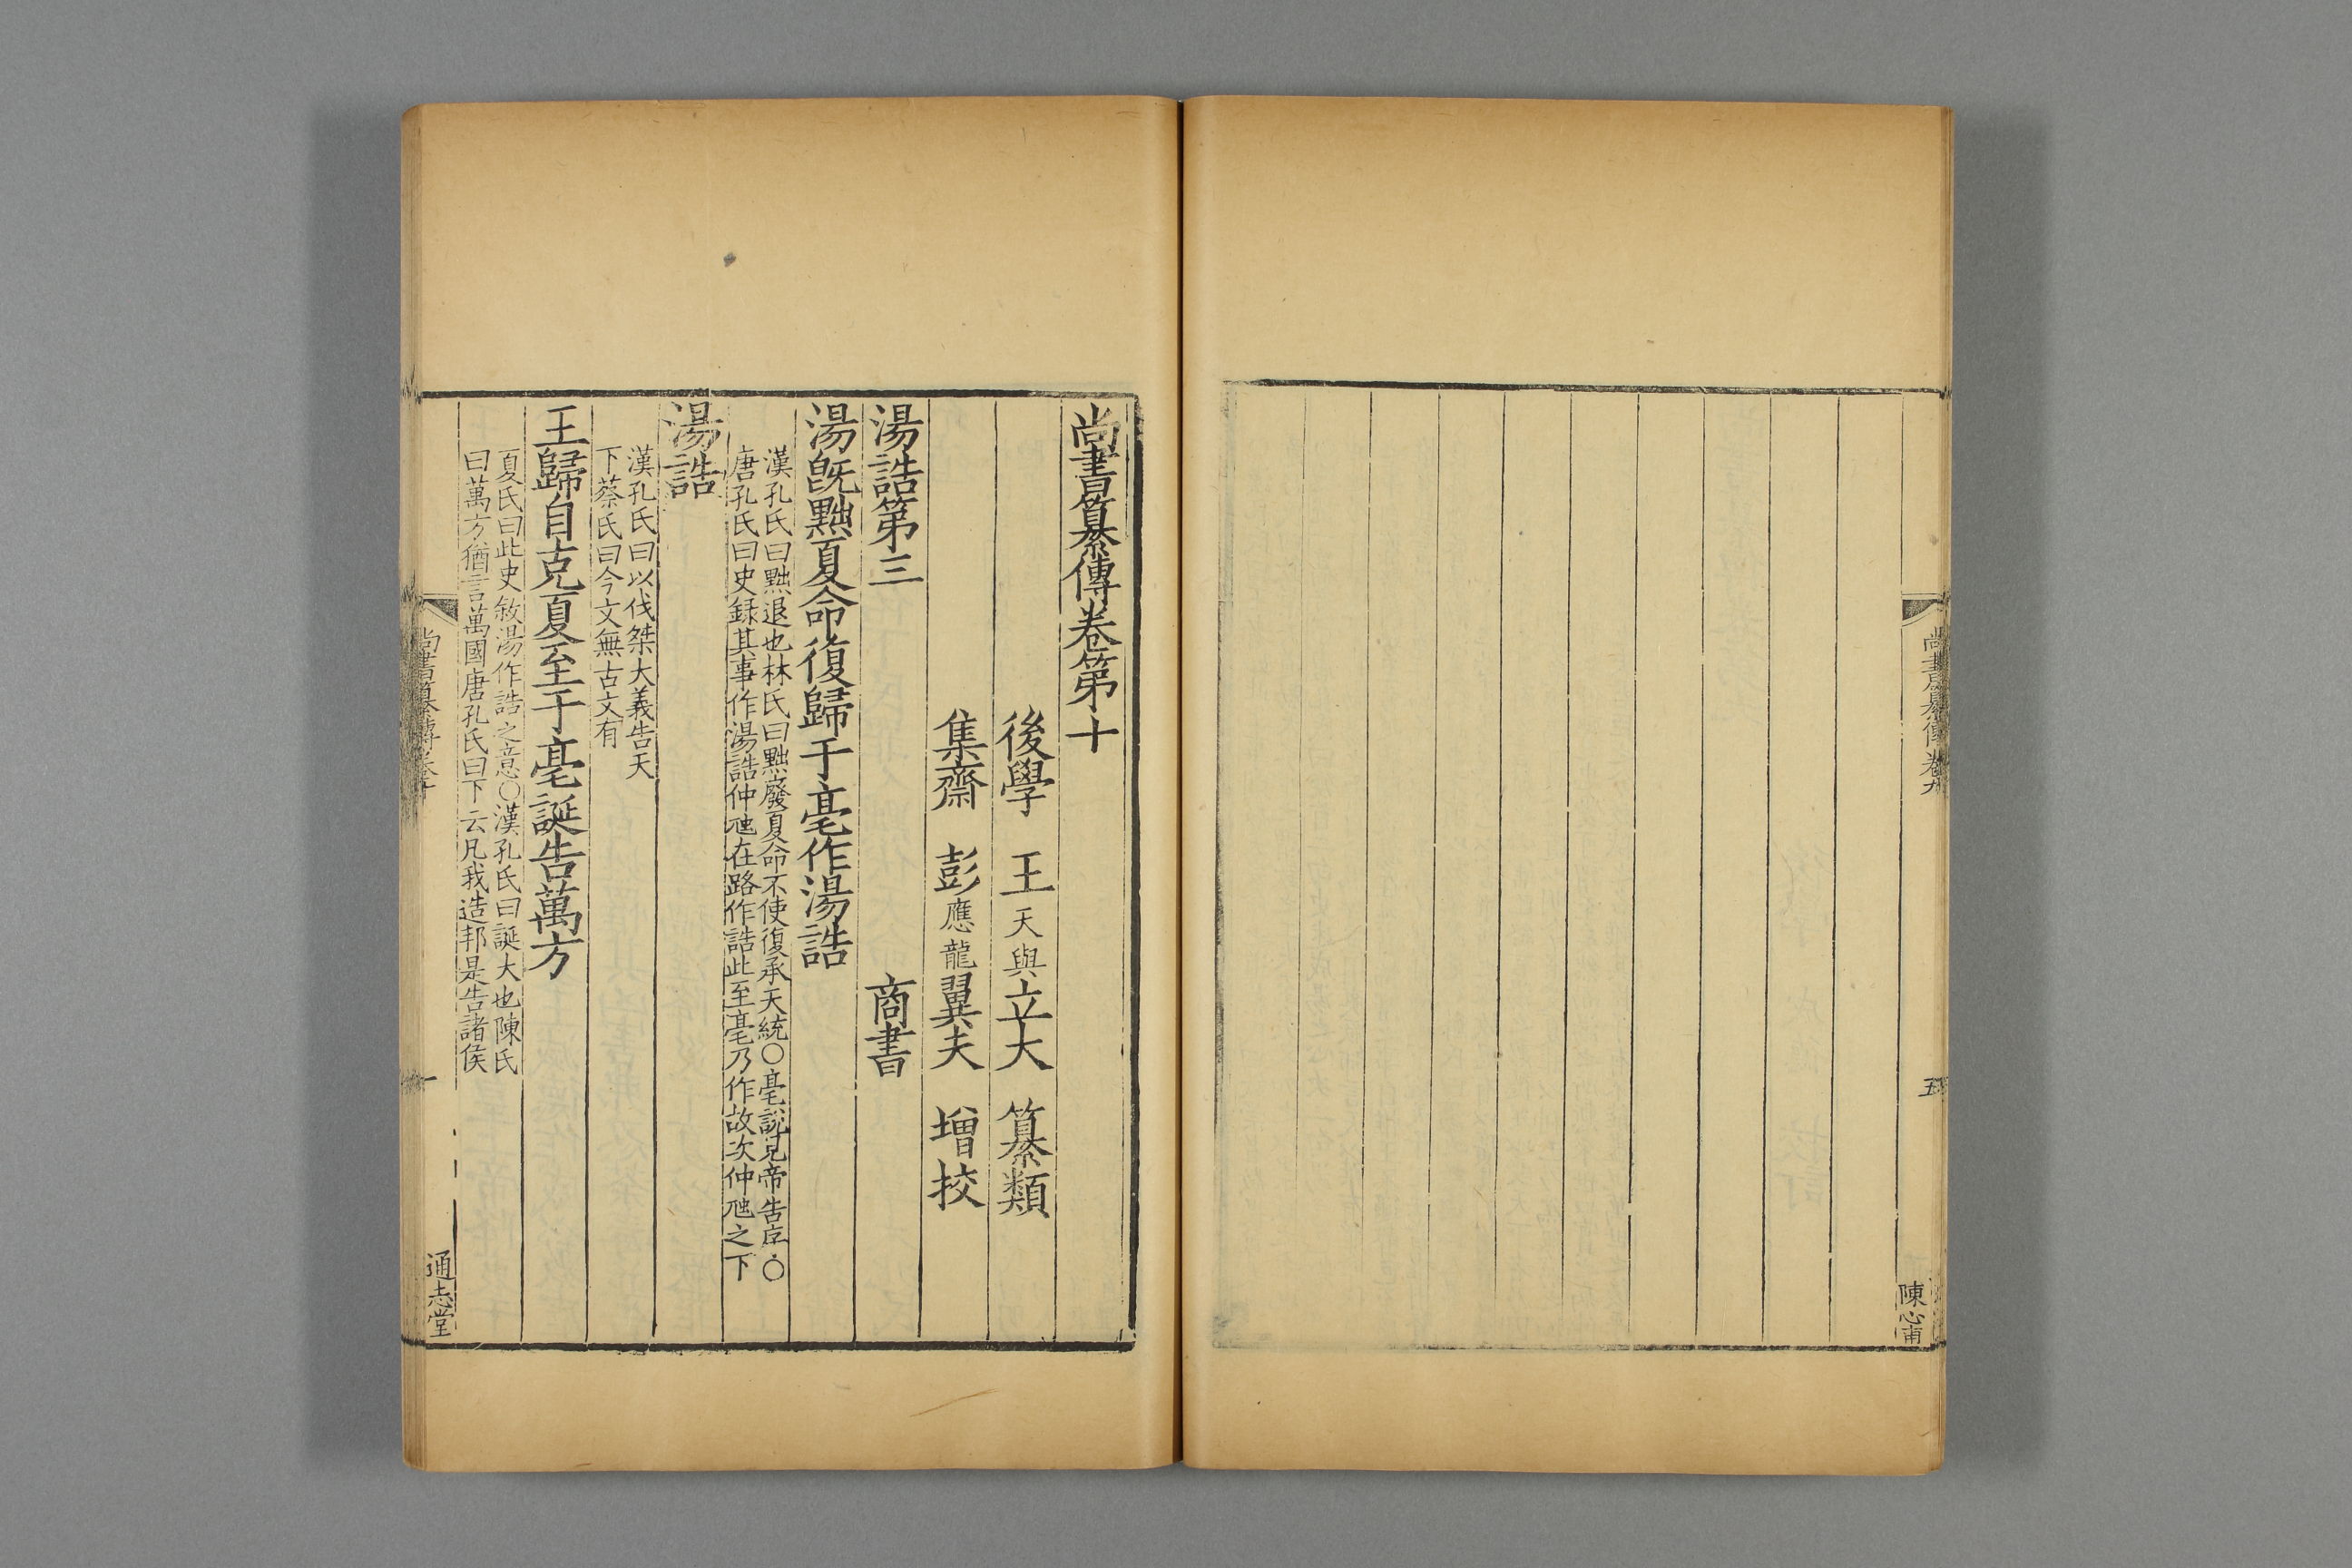 尚書纂傳卷九
五
陳心甫
尚書纂傳卷第十
後學 王天與立大 纂類
集齋 彭應龍翼夫 増挍
湯誥第三 商書
湯旣黜夏命復歸于亳作湯誥
漢孔氏曰黜退也林氏曰黜廢夏命不使復承天統〇亳說見帝告序〇
唐孔氏曰史録其事作湯誥仲虺在路作誥此至亳乃作故次仲虺之下
湯誥
漢孔氏曰以伐桀大義告天
下蔡氏曰今文無古文有
王歸自克夏至于亳誕告萬方
夏氏曰此史敘湯作誥之意〇漢孔氏曰誕大也陳氏
曰萬方猶言萬國唐孔氏曰下云凡我造邦是告諸侯
尚書纂傳卷十
一
通志堂